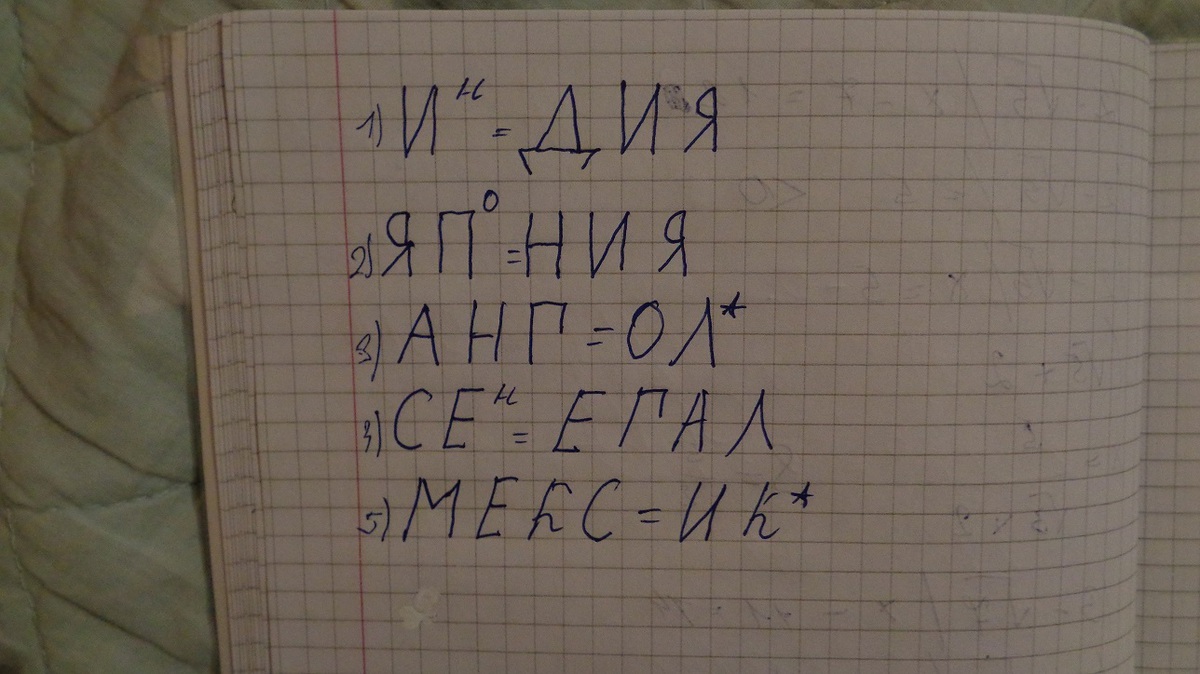 1) Иᴴ = ДИЯ
2) ЯПᴼ = НИЯ
3) АНГ = ОЛ*
4) СЕᴴ = ЕГАЛ
5) МЕКС = ИК*